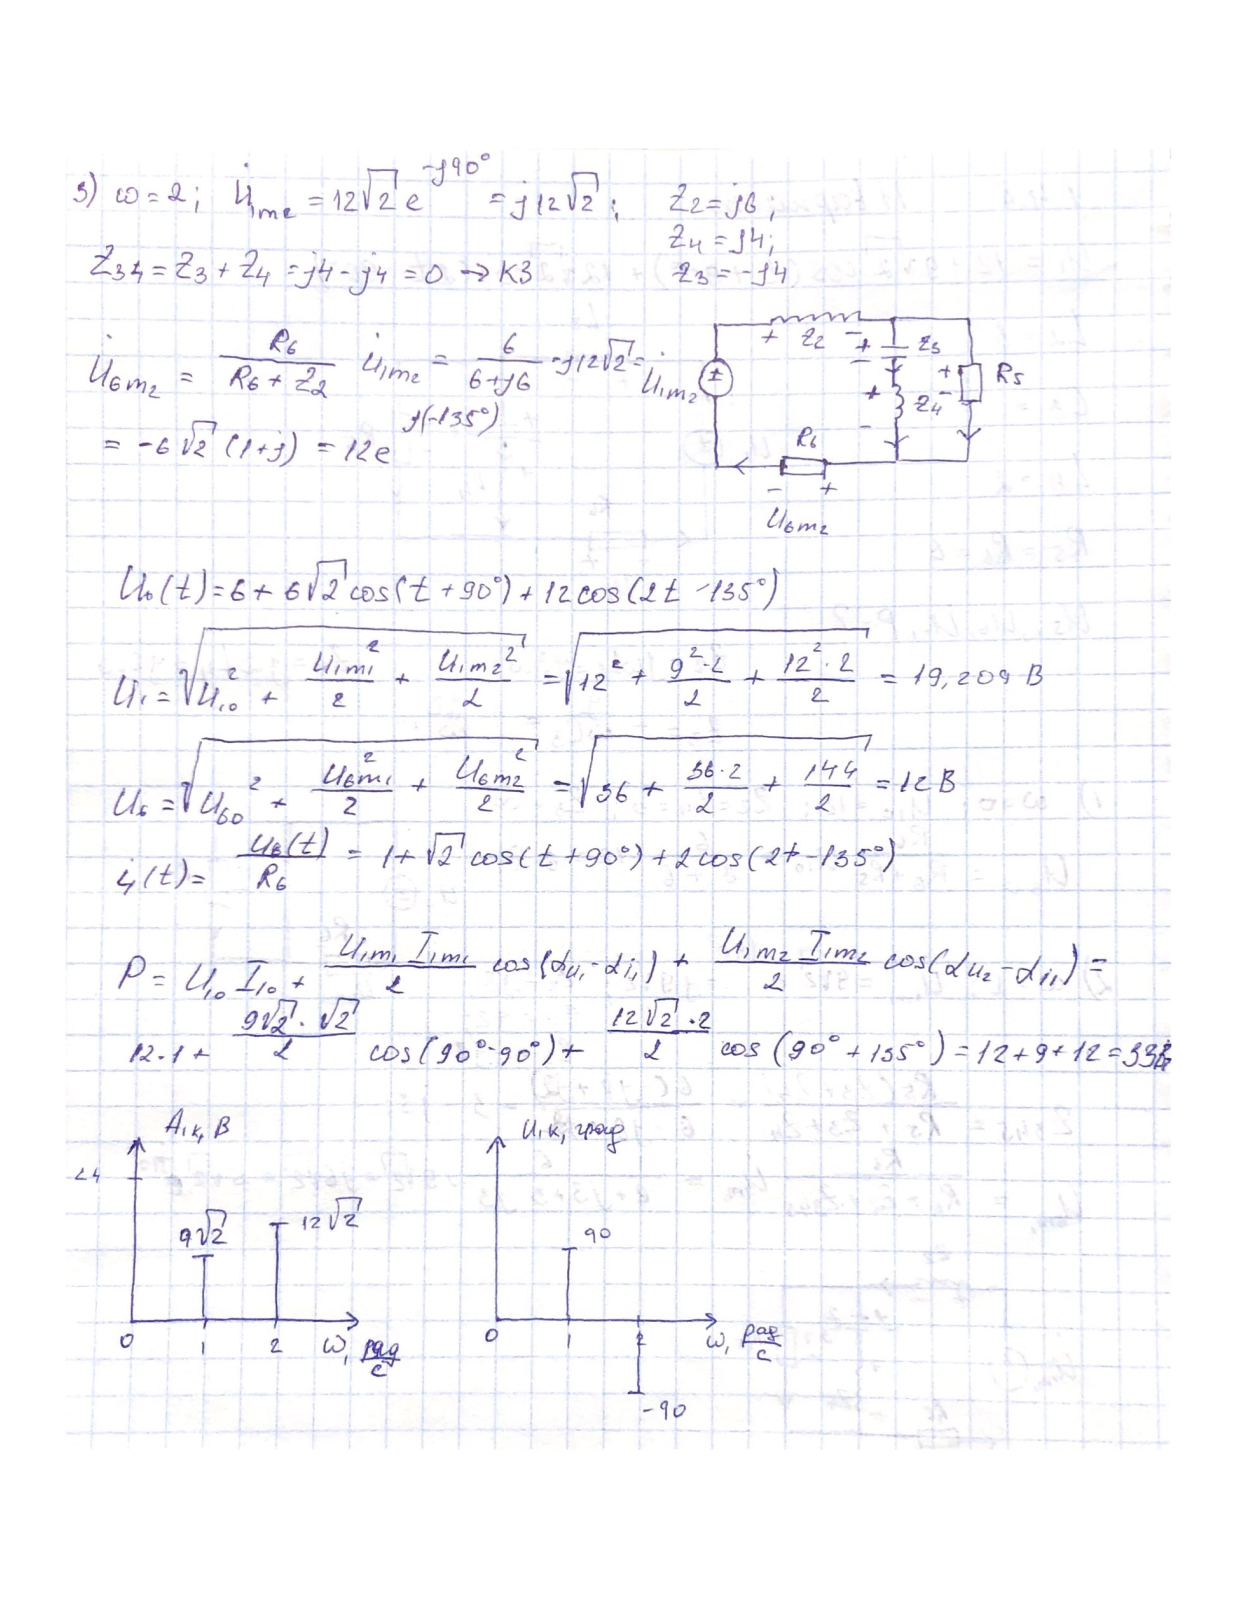 3) ω = 2; U̇₁ₘ₂ = 12√2 e^(-j90°) = j12√2; Z₂ = j6;
Z₄ = j4;
Z₃₄ = Z₃ + Z₄ = j4 - j4 = 0 → КЗ Z₃ = -j4
U̇₆ₘ₂ = R₆/(R₆ + Z₂) U̇₁ₘ₂ = 6/(6 + j6) · j12√2 =
= -6√2 (1+j) = 12e^(j(-135°))
+ Z₂ - + Z₃ -
U̇₁ₘ₂ ± + Z₄ - + R₅ -
R₆
- +
U₆ₘ₂
U₆(t) = 6 + 6√2 cos(t + 90°) + 12 cos(2t - 135°)
U₁ = √(U₁₀² + U₁ₘ₁²/2 + U₁ₘ₂²/2) = √(12² + 9²·2/2 + 12²·2/2) = 19,209 В
U₆ = √(U₆₀² + U₆ₘ₁²/2 + U₆ₘ₂²/2) = √(36 + 36·2/2 + 144/2) = 12 В
i₁(t) = U₆(t)/R₆ = 1 + √2 cos(t + 90°) + 2 cos(2t - 135°)
P = U₁₀ I₁₀ + U₁ₘ₁ I₁ₘ₁/2 cos(αu₁ - αi₁) + U₁ₘ₂ I₁ₘ₂/2 cos(αu₂ - αi₁) =
12·1 + 9√2·√2/2 cos(90° - 90°) + 12√2·2/2 cos(90° + 135°) = 12 + 9 + 12 = 33
A₁к, В U₁к, град
24
9√2 12√2 90
0 1 2 ω, рад/с 0 1 2 ω, рад/с
-90